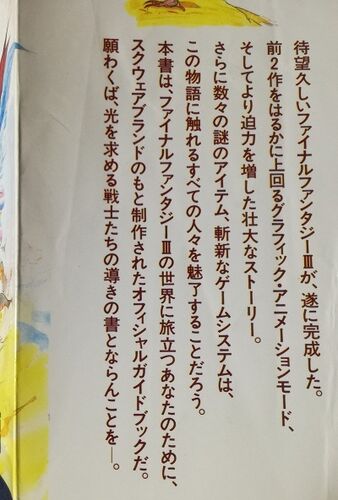 待望久しいファイナルファンタジーIIIが、遂に完成した。
前2作をはるかに上回るグラフィック・アニメーションモード、
そしてより迫力を増した壮大なストーリー。
さらに数々の謎のアイテム、斬新なゲームシステムは、
この物語に触れるすべての人々を魅了することだろう。
本書は、ファイナルファンタジーIIIの世界に旅立つあなたのために、
スクウェアブランドのもと制作されたオフィシャルガイドブックだ。
願わくば、光を求める戦士たちの導きの書とならんことを—。